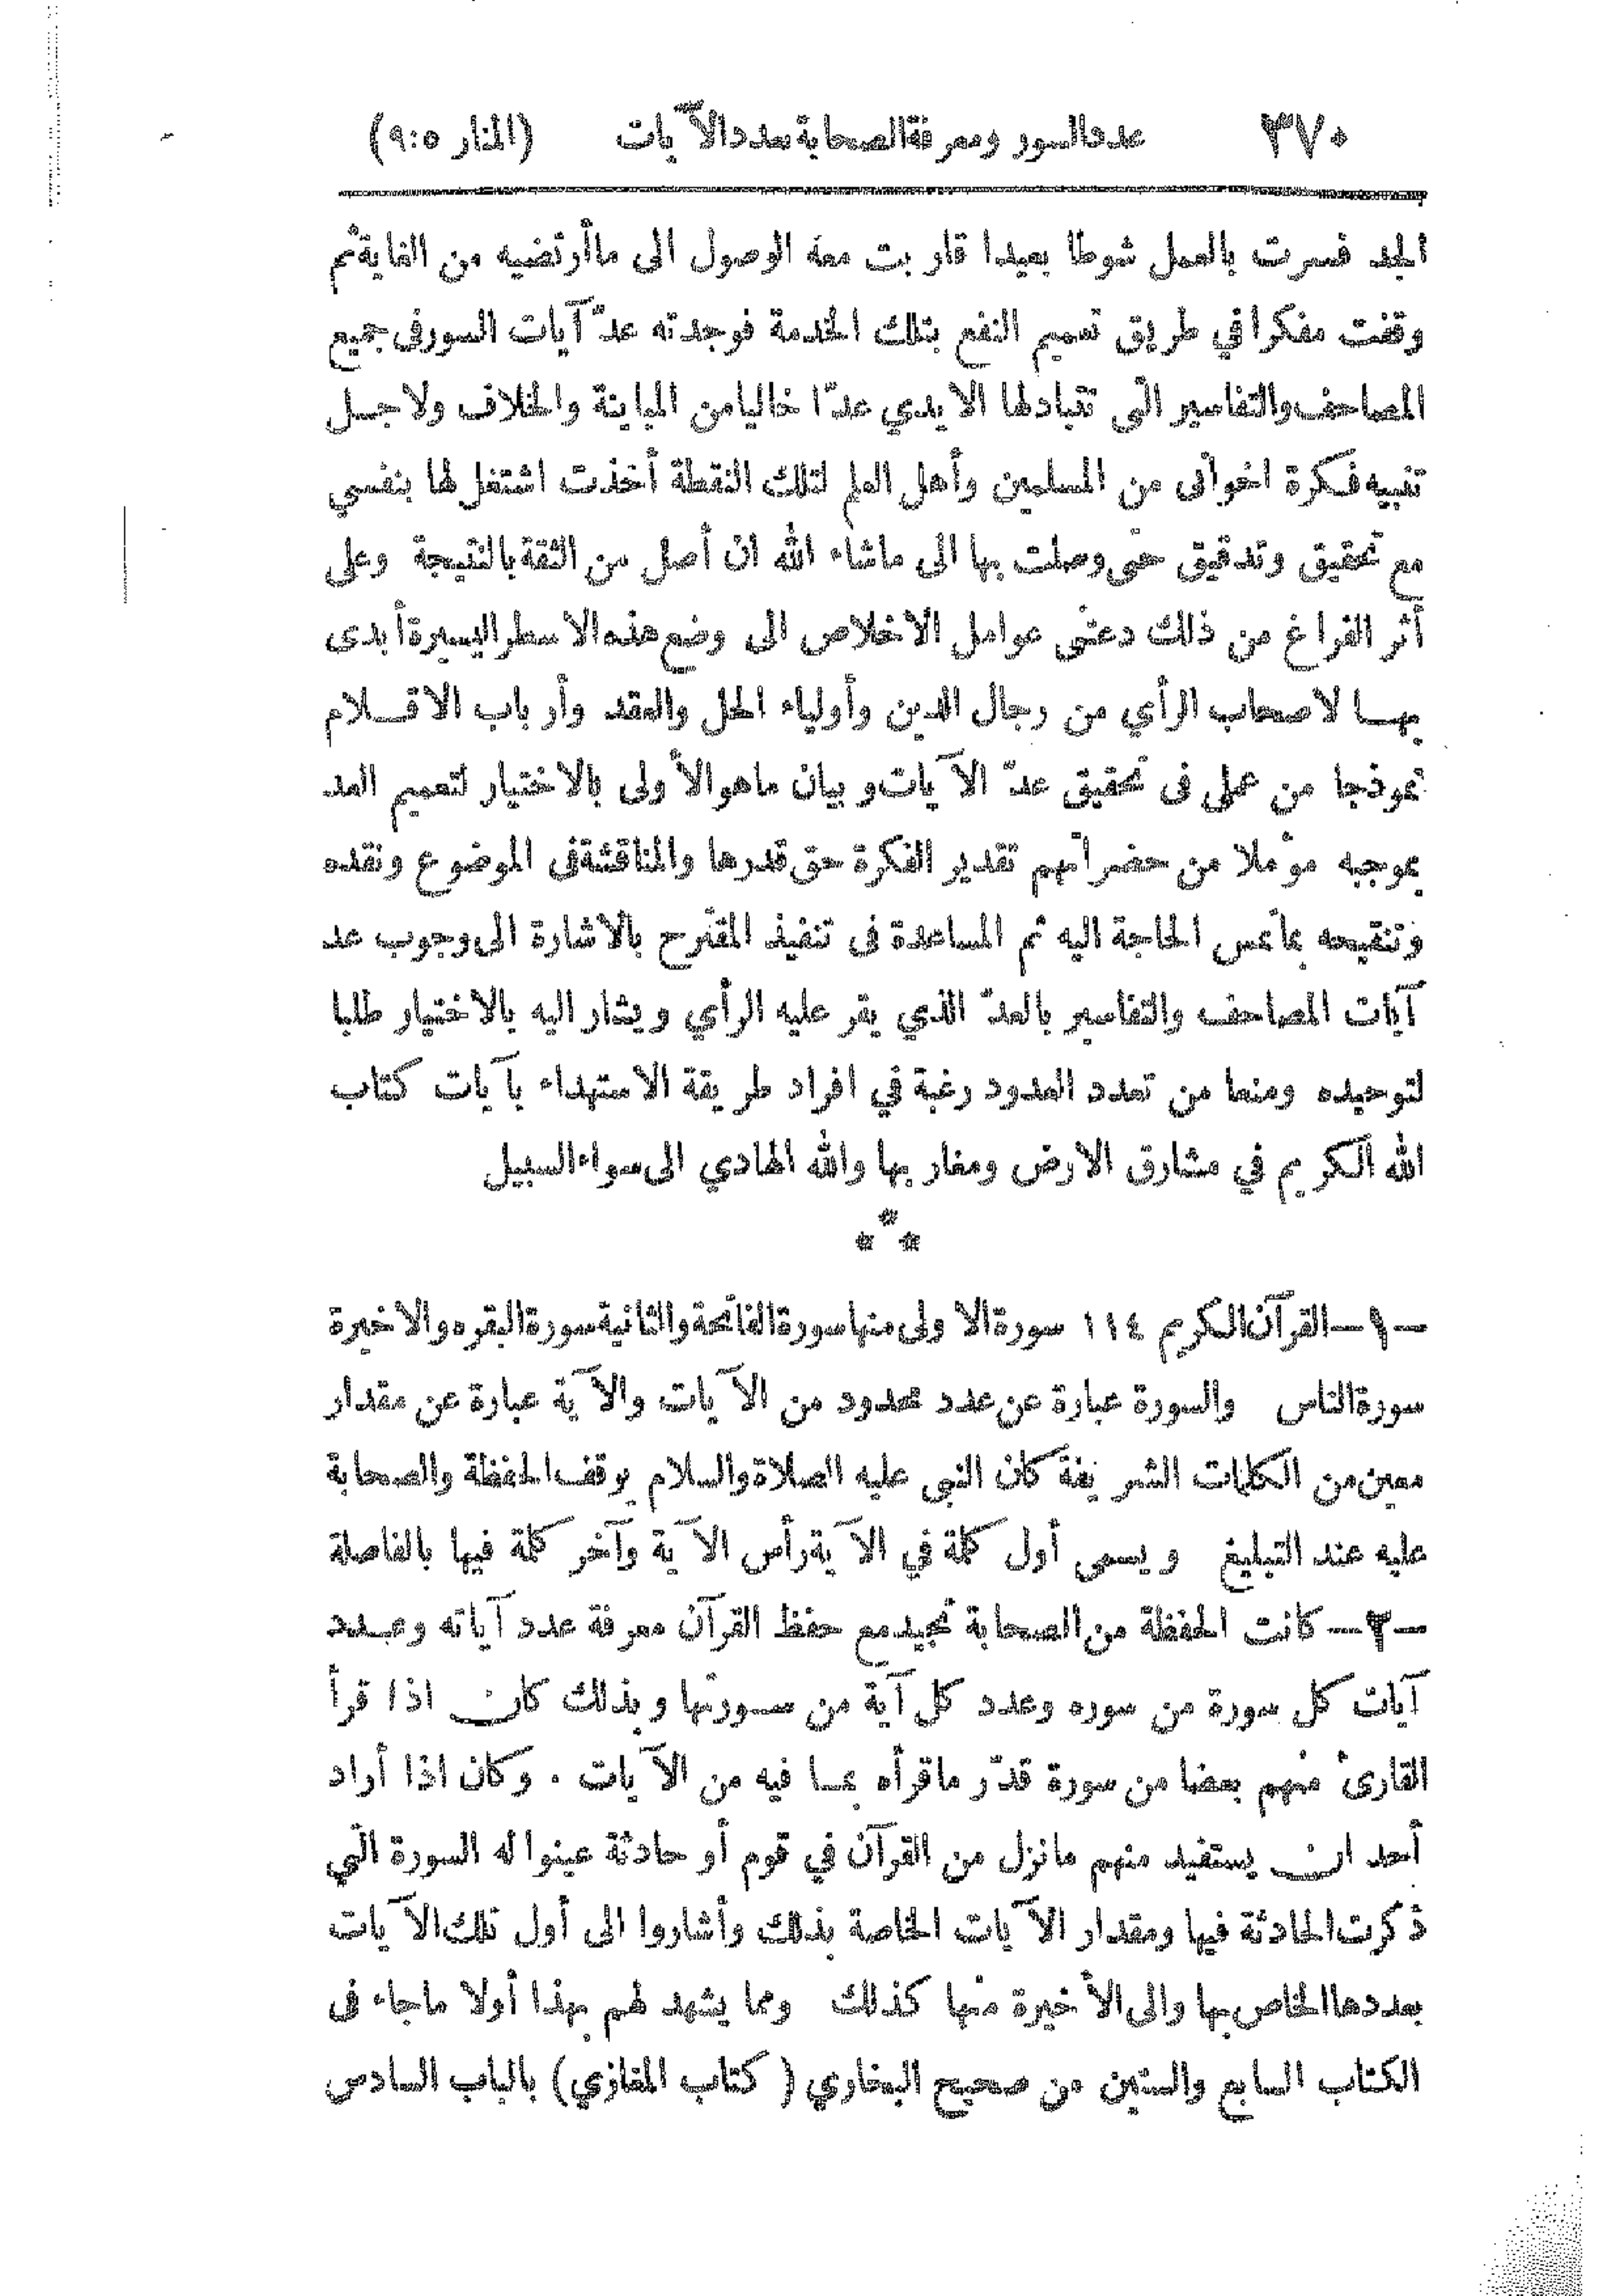 ٣٧٠ عدد السور ومعرفة الصحابة بعدد الآيات (المنار ٥:٩)
الجد فسرت بالعمل شوطا بعيدا قاربت معه الوصول الى ما أرتضيه من الغاية ثم
وقفت مفكرا في طريق تعميم النفع بتلك الخدمة فوجدته عدّ آيات السور في جميع
المصاحف والتفاسير التي تتبادلها الايدي عدّا خاليا من المباينة والخلاف ولاجل
تنبيه فكرة اخواني من المسلمين وأهل العلم لتلك النقطة أخذت اشتغل لها بنفسي
مع تحقيق وتدقيق حتى وصلت بها الى ماشاء الله ان أصل من الثقة بالنتيجة وعلى
أثر الفراغ من ذلك دعتني عوامل الاخلاص الى وضع هذه الاسطر اليسيرة أبدى
بها لاصحاب الرأي من رجال الدين وأولياء الحل والعقد وأرباب الاقلام
نموذجا من عملي في تحقيق عدّ الآيات وبيان ماهو الأولى بالاختيار لتعميم العد
بموجبه مؤملا من حضراتهم تقدير الفكرة حق قدرها والمناقشة في الموضوع ونقده
وتنقيحه بما تمس الحاجة اليه ثم المساعدة في تنفيذ المقترح بالاشارة الى وجوب عد
آيات المصاحف والتفاسير بالعدّ الذي يقر عليه الرأي ويشار اليه بالاختيار طلبا
لتوحيده ومنعا من تعدد العدود رغبة في افراد طريقة الاستهداء بآيات كتاب
الله الكريم في مشارق الارض ومغاربها والله الهادي الى سواء السبيل
***
—١— القرآن الكريم ١١٤ سورة الاولى منها سورة الفاتحة والثانية سورة البقره والاخيرة
سورة الناس والسورة عبارة عن عدد محدود من الآيات والآية عبارة عن مقدار
معين من الكلمات الشريفة كان النبي عليه الصلاة والسلام يوقف الحفظة والصحابة
عليه عند التبليغ ويسمى أول كلمة في الآية رأس الآية وآخر كلمة فيها بالفاصلة
—٢— كانت الحفظة من الصحابة تجيد مع حفظ القرآن معرفة عدد آياته وعدد
آيات كل سورة من سوره وعدد كل آية من سورتها وبذلك كان اذا قرأ
القارئ منهم بعضا من سورة قدّر ماقرأه بما فيه من الآيات . وكان اذا أراد
أحد ان يستفيد منهم مانزل من القرآن في قوم أو حادثة عينوا له السورة التي
ذكرت الحادثة فيها ومقدار الآيات الخاصة بذلك وأشاروا الى أول تلك الآيات
بعددها الخاص بها والى الأخيرة منها كذلك ومما يشهد لهم بهذا أولا ماجاء في
الكتاب السابع والستين من صحيح البخاري (كتاب المغازي) بالباب السادس